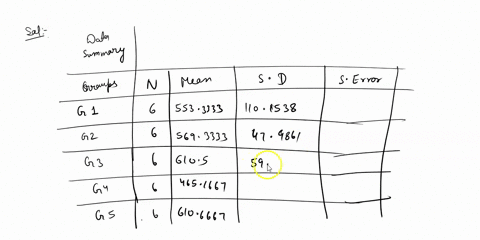 Sol:-
Data
Summary
Groups N Mean S.D S.Error
G1 6 553.3333 110.1538
G2 6 569.3333 47.9861
G3 6 610.5 59.
G4 6 465.1667
G5 6 610.6667